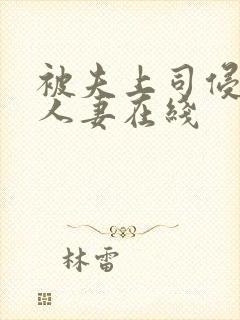 被夫上司侵
人妻在线
林雷